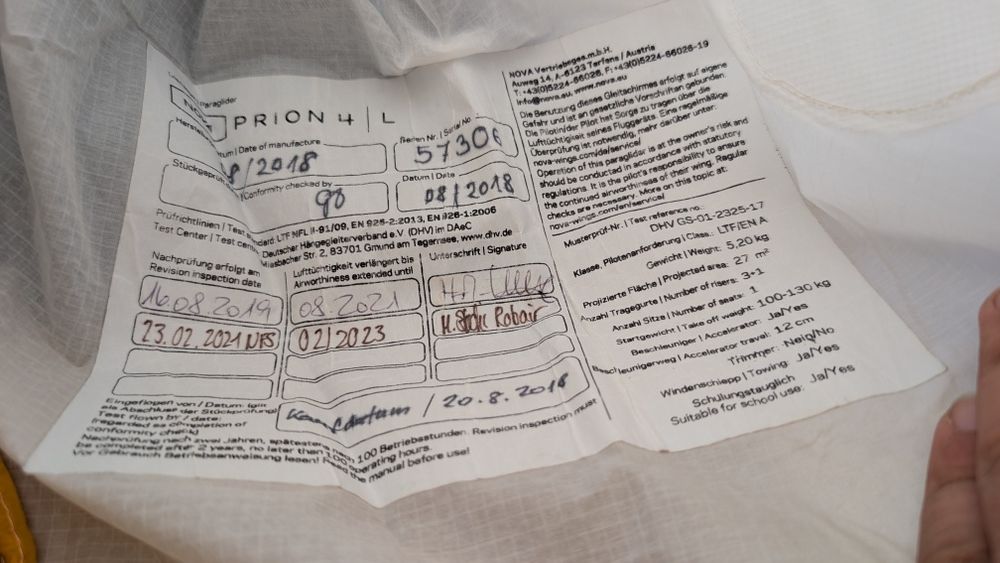 Paraglider
PRION 4 | L
Herstel
Date of manufacture
8/2018
Serien Nr. | Serial No
57306
Stückgeprüf
Conformity checked by
Datum | Date
08/2018
Prüfrichtlinien | Test
LTF NFL II-91/09, EN 926-2:2013, EN 926-1:2006
Test Center | Test
Deutscher Hängegleiterverband e.V (DHV) im DAeC
Miesbacher Str. 2, 83701 Gmund am Tegernsee, www.dhv.de
Nachprüfung erfolgt am
Revision inspection date
Lufttüchtigkeit verlängert bis
Airworthiness extended until
Unterschrift | Signature
16.08.2019
08.2021
23.02.2021
02/2023
Eingeflogen von / Datum: (gilt
als Abschluss der Stückprüfung)
Test flown by / date:
(regarded as completion of
conformity check)
/ 20.8.2018
Nachprüfung nach zwei Jahren, spätestens nach 100 Betriebsstunden. Revision inspection must
be completed after 2 years, no later than 100 operating hours.
Vor Gebrauch Betriebsanweisung lesen! Read the manual before use!
NOVA Vertriebsges.m.b.H.
Auweg 14, A-6123 Terfens / Austria
T: +43(0)5224-66026, F:+43(0)5224-66026-19
info@nova.eu, www.nova.eu
Die Benutzung dieses Gleitschirmes erfolgt auf eigene
Gefahr und ist an gesetzliche Vorschriften gebunden.
Die Pilotin/der Pilot hat Sorge zu tragen über die
Lufttüchtigkeit seines Fluggeräts. Eine regelmäßige
Überprüfung ist notwendig, mehr darüber unter:
nova-wings.com/de/service/
Operation of this paraglider is at the owner's risk and
should be conducted in accordance with statutory
regulations. It is the pilot's responsibility to ensure
the continued airworthiness of their wing. Regular
checks are necessary. More on this topic at:
nova-wings.com/en/service/
Musterprüf-Nr. | Test reference no.: DHV GS-01-2325-17
Klasse, Pilotenanforderung | Class.: LTF/EN A
Gewicht | Weight: 5,20 kg
Projizierte Fläche | Projected area: 27 m²
Anzahl Tragegurte | Number of risers: 3+1
Anzahl Sitze | Number of seats: 1
Startgewicht | Take off weight: 100-130 kg
Beschleuniger | Accelerator: Ja/Yes
Beschleunigerweg | Accelerator travel: 12 cm
Trimmer: Nein/No
Windenschlepp | Towing: Ja/Yes
Schulungstauglich
Suitable for school use: Ja/Yes